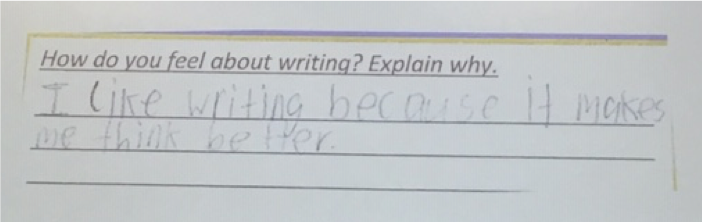 How do you feel about writing? Explain why.
I like writing because it makes
me think better.